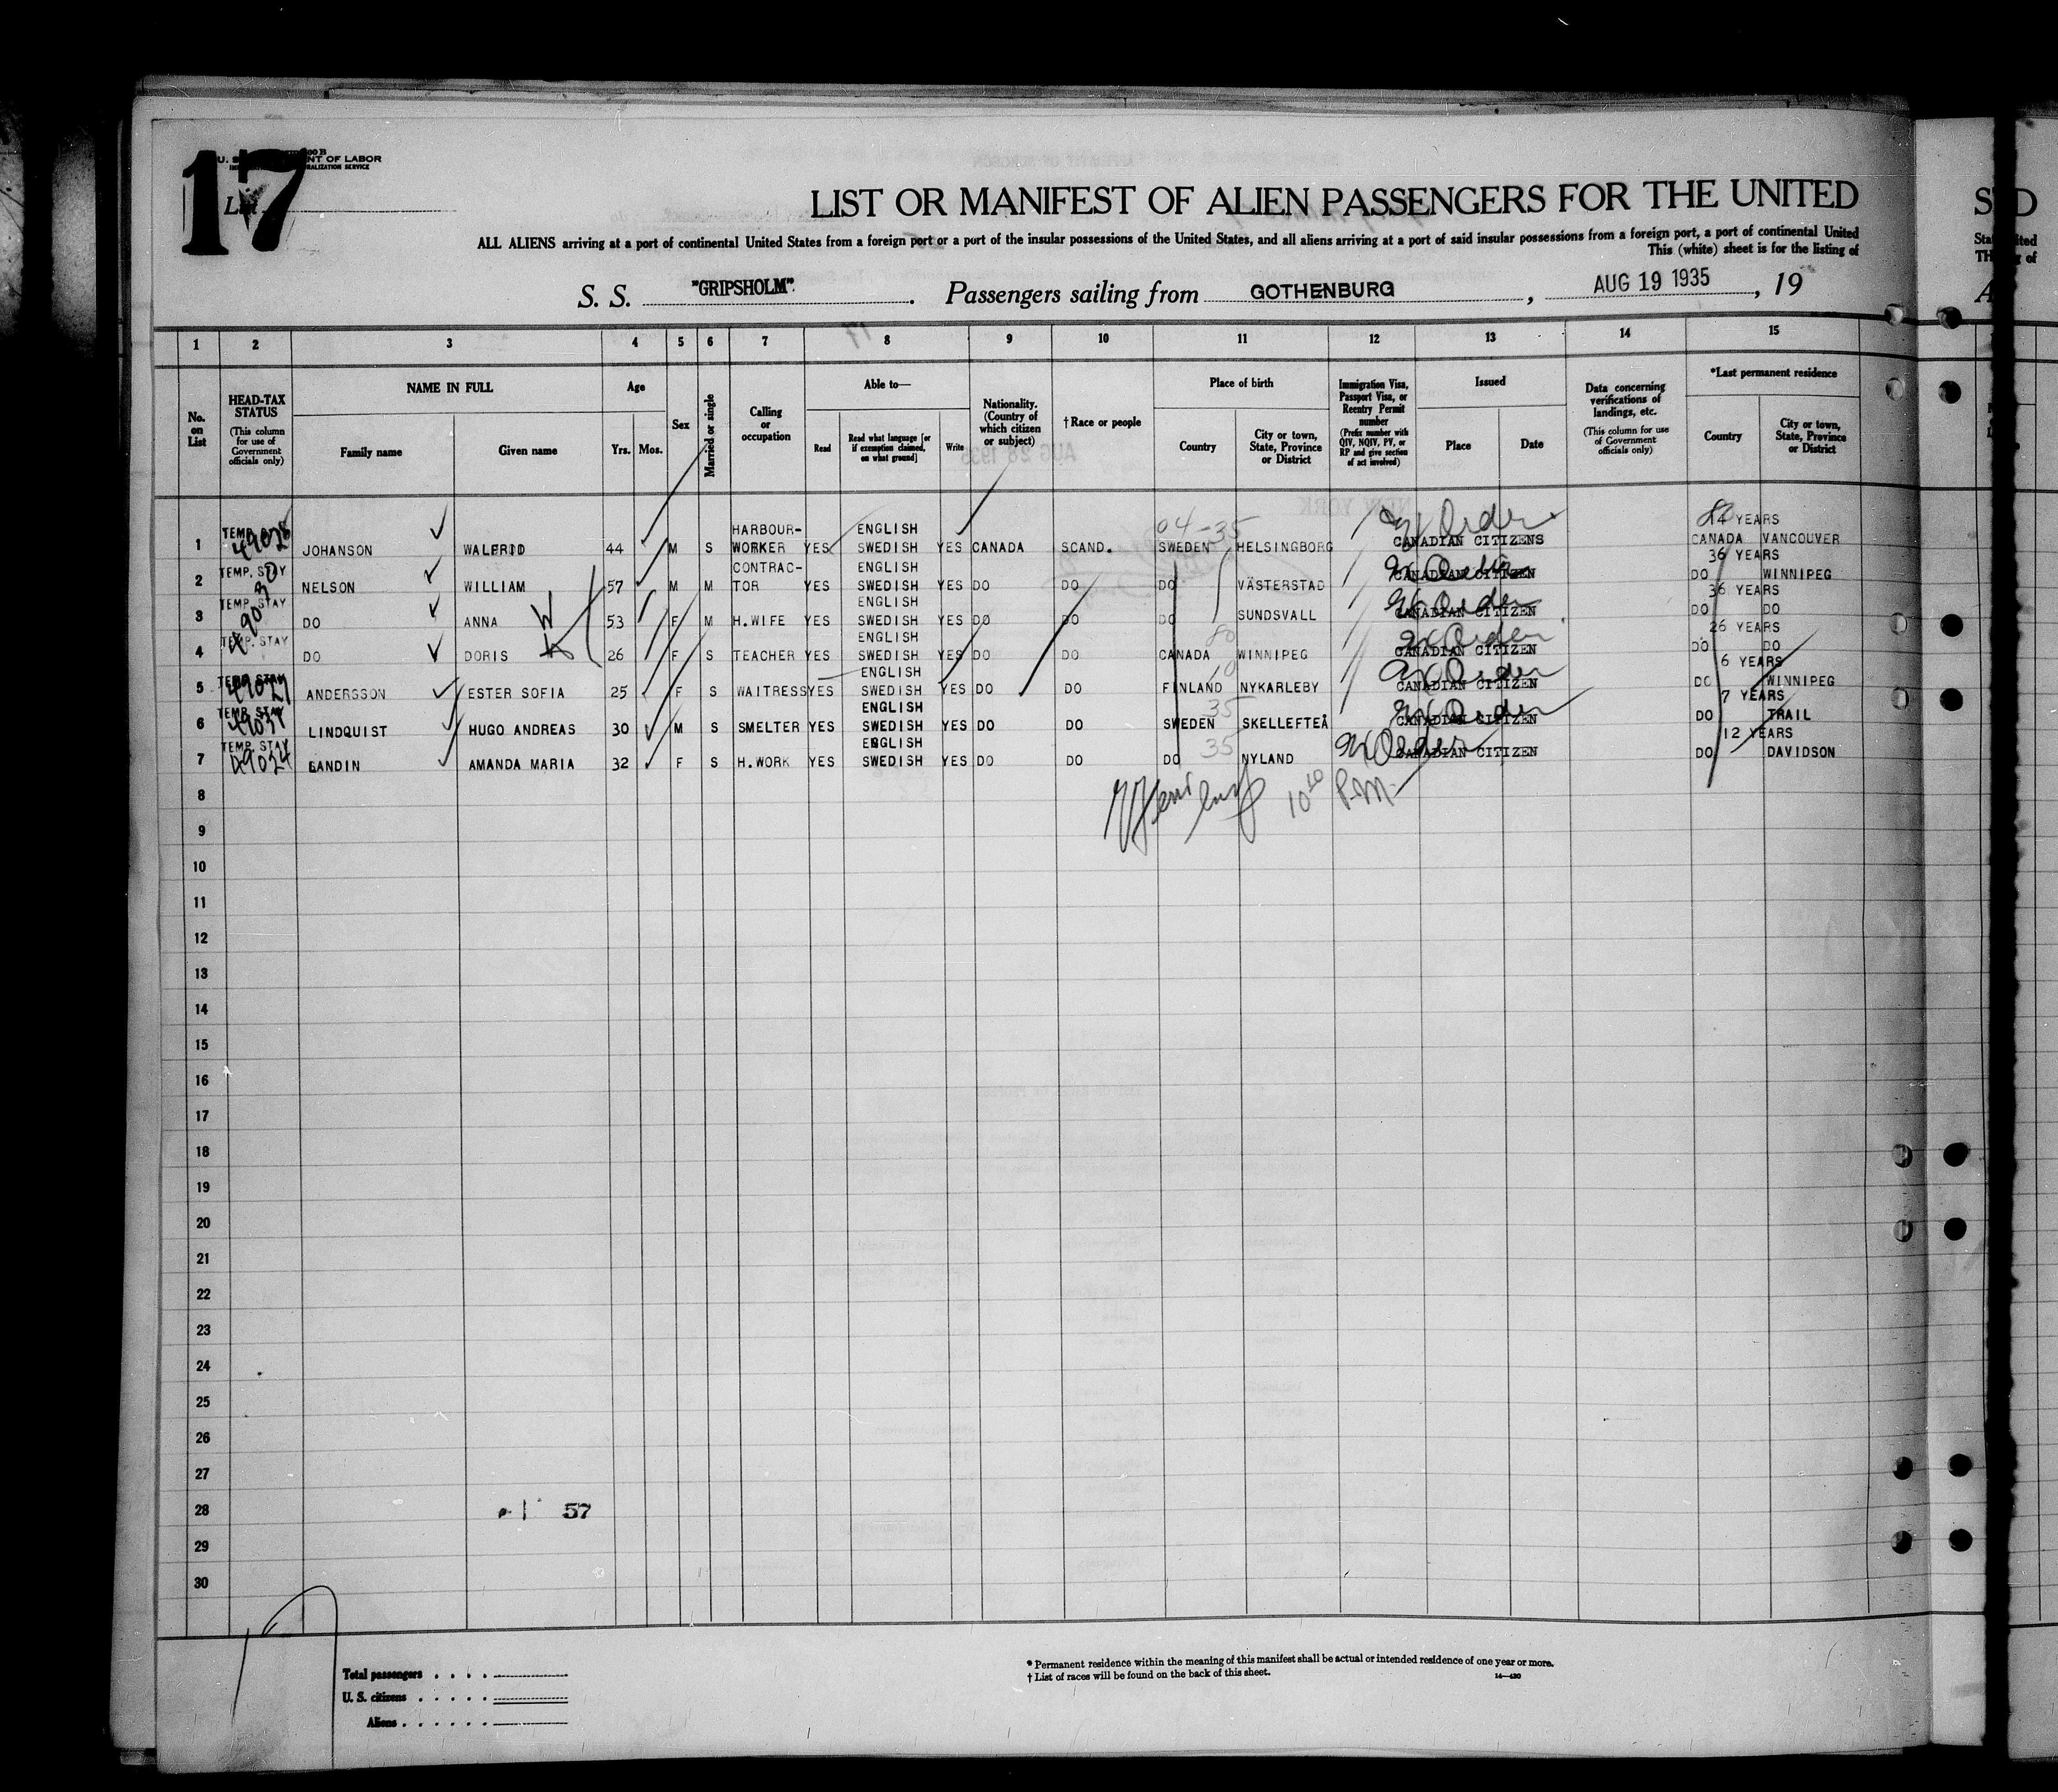 17
NT OF LABOR
LIST OR MANIFEST OF ALIEN PASSENGERS FOR THE UNITED
ALL ALIENS arriving at a port of continental United States from a foreign port or a port of the insular possessions of the United States, and all aliens arriving at a port of said insular possessions from a foreign port, a port of continental United
This (white) sheet is for the listing of
S. S. "GRIPSHOLM". Passengers sailing from GOTHENBURG, AUG 19 1935, 19
1 2 3 4 5 6 7 8 9 10 11 12 13 14 15
No. on List
HEAD-TAX STATUS (This column for use of Government officials only)
NAME IN FULL
Family name Given name
Age
Yrs. Mos.
Sex
Married or single
Calling or occupation
Able to—
Read Read what language [or if exemption claimed, on what ground] Write
Nationality. (Country of which citizen or subject)
† Race or people
Place of birth
Country City or town, State, Province or District
Immigration Visa, Passport Visa, or Reentry Permit number (Prefix number with QIV, NQIV, PV, or RP and give section of act involved)
Issued
Place Date
Data concerning verifications of landings, etc. (This column for use of Government officials only)
*Last permanent residence
Country City or town, State, Province or District
HARBOUR- ENGLISH 04-35 14 YEARS
1 49028 JOHANSON WALFRID 44 M S WORKER YES SWEDISH YES CANADA SCAND. SWEDEN HELSINGBORG CANADIAN CITIZENS CANADA VANCOUVER
TEMP. STAY CONTRAC- ENGLISH 36 YEARS
2 NELSON WILLIAM 57 M M TOR YES SWEDISH YES DO DO DO VÄSTERSTAD CANADIAN CITIZEN DO WINNIPEG
TEMP. STAY ENGLISH 36 YEARS
3 DO ANNA 53 F M H.WIFE YES SWEDISH YES DO DO DO SUNDSVALL CANADIAN CITIZEN DO DO
TEMP. STAY ENGLISH 80 26 YEARS
4 DO DORIS 26 F S TEACHER YES SWEDISH YES DO DO CANADA WINNIPEG CANADIAN CITIZEN DO DO
TEMP. STAY ENGLISH 6 YEARS
5 ANDERSSON ESTER SOFIA 25 F S WAITRESS YES SWEDISH YES DO DO FINLAND NYKARLEBY CANADIAN CITIZEN DO WINNIPEG
TEMP. STAY ENGLISH 35 7 YEARS
6 LINDQUIST HUGO ANDREAS 30 M S SMELTER YES SWEDISH YES DO DO SWEDEN SKELLEFTEÅ CANADIAN CITIZEN DO TRAIL
TEMP. STAY ENGLISH 35 12 YEARS
7 49034 SANDIN AMANDA MARIA 32 F S H.WORK YES SWEDISH YES DO DO DO NYLAND CANADIAN CITIZEN DO DAVIDSON
8
9
10
11
12
13
14
15
16
17
18
19
20
21
22
23
24
25
26
27
28 57
29
30
Total passengers . . . .
U. S. citizens . . . . .
Aliens . . . . . .
* Permanent residence within the meaning of this manifest shall be actual or intended residence of one year or more.
† List of races will be found on the back of this sheet. 14—430